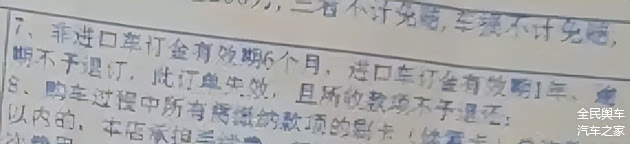 三者不计免赔,车损不计免赔,
7、非进口车订金有效期6个月,进口车订金有效期1年、
期不予退订,此订单失效,且所收款项不予退还;
8、购车过程中所有需缴纳款项的刷卡
以内的,本店承担
全民舆车
汽车之家